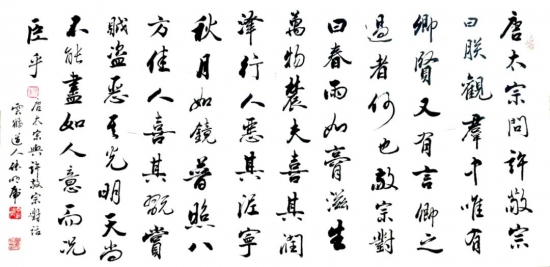 唐太宗問許敬宗
曰朕觀羣臣唯有
卿賢又有言卿之
過者何也敬宗對
曰春雨如膏滋生
萬物農夫喜其潤
澤行人惡其泥寧
秋月如鏡普照八
方佳人喜其玩賞
賊盜惡其光明天尚
不能盡如人意而況
臣乎
唐太宗與許敬宗對話
雲鶴道人